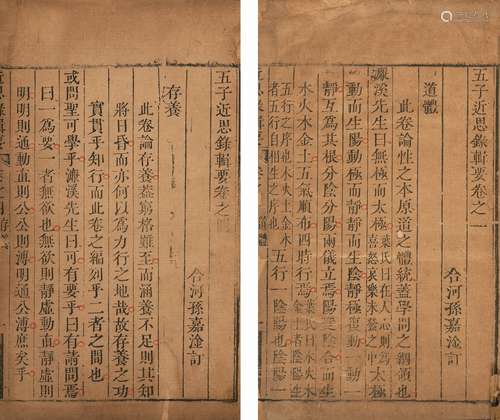 五子近思錄輯要卷之一
合河孫嘉淦訂
道體
此卷論性之本原道之體統蓋學問之綱領也
濂溪先生曰無極而太極 葉氏曰在人心為喜怒哀樂未發之中 太極
動而生陽動極而靜靜而生陰靜極復動一動一
靜互為其根分陰分陽兩儀立焉陽變陰合而生
水火木金土五氣順布四時行焉 葉氏曰水火木金土者陰陽生
五行之序也木火土金水五行自相生之序也 五行一陰陽也陰陽一
五子近思錄輯要卷之
合河孫嘉淦訂
存養
此卷論存養蓋窮格雖至而涵養不足則其知
將日昏而亦何以為力行之地哉故存養之功
實貫乎知行而此卷之編列乎二者之間也
或問聖可學乎濂溪先生曰可有要乎曰有請問焉
曰一為要一者無欲也無欲則靜虛動直靜虛則
明明則通動直則公公則溥明通公溥庶矣乎